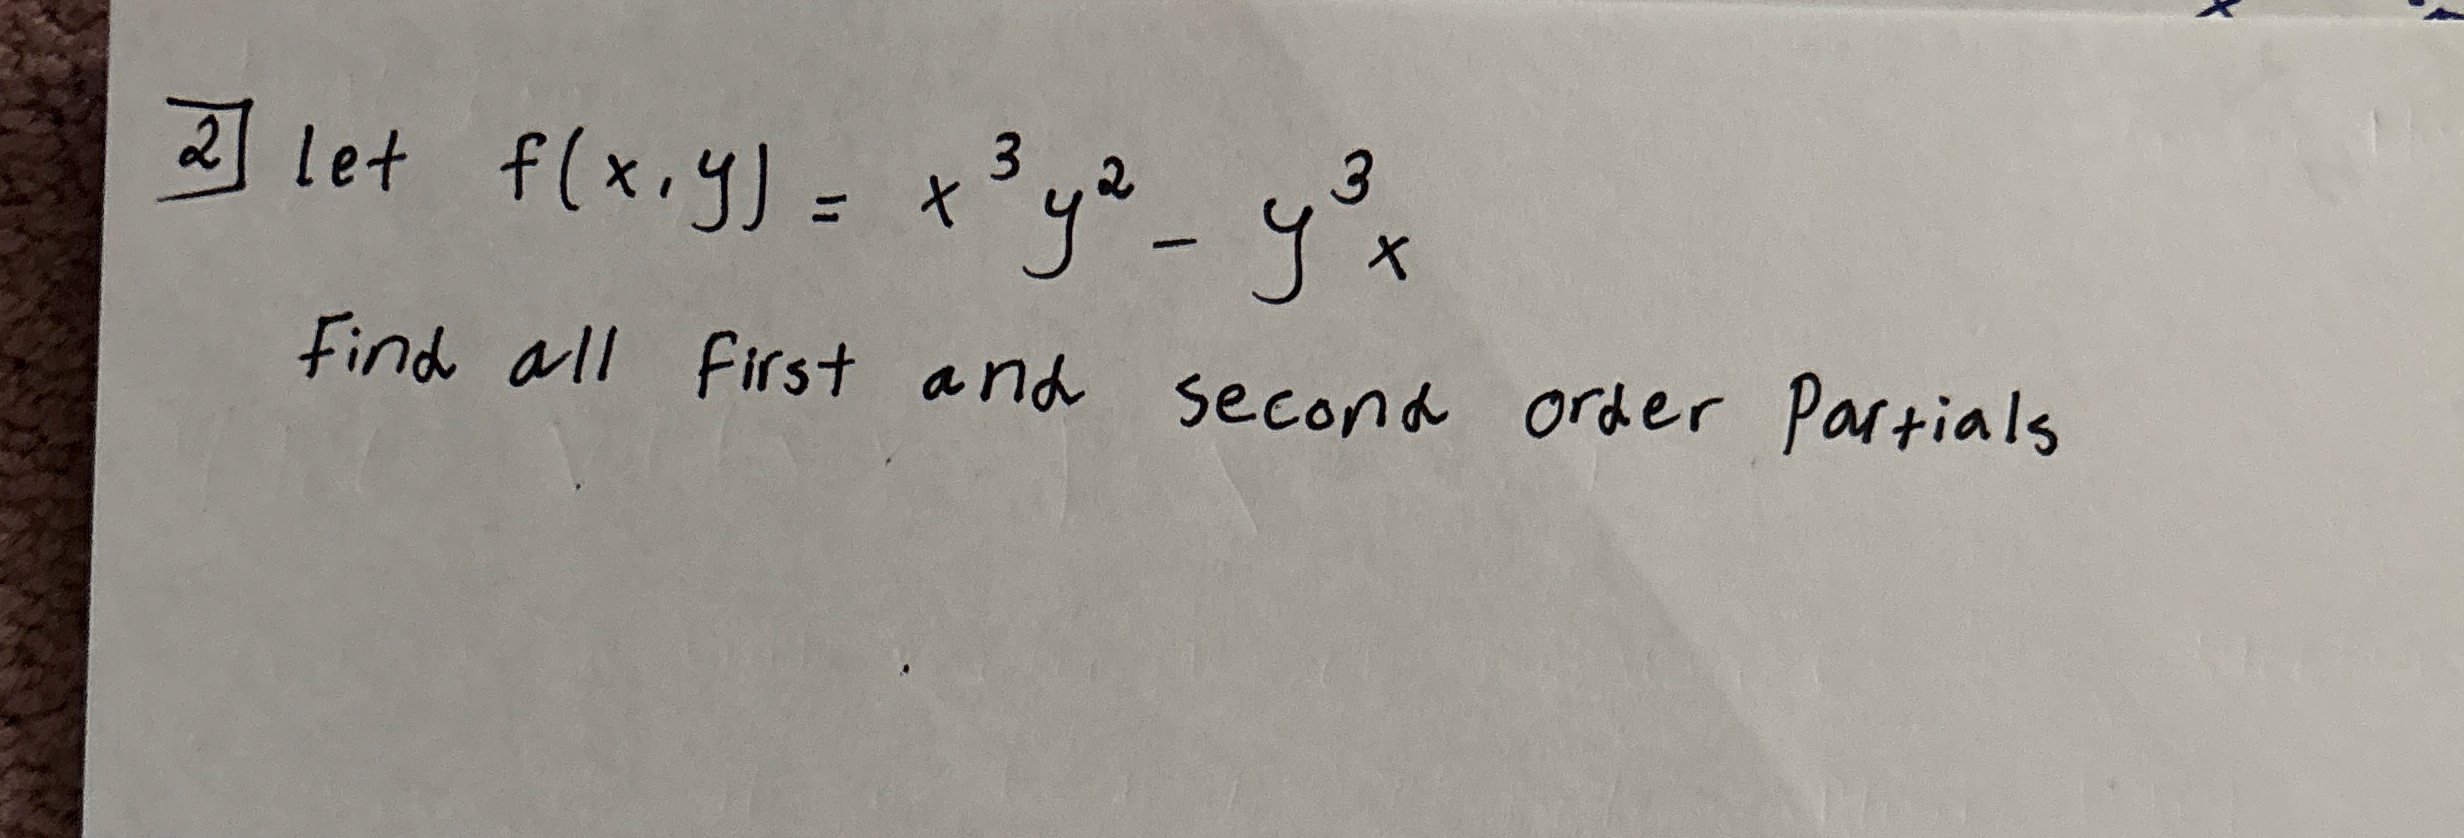 2 let f(x,y) = x³y² - y³x
Find all first and second order Partials